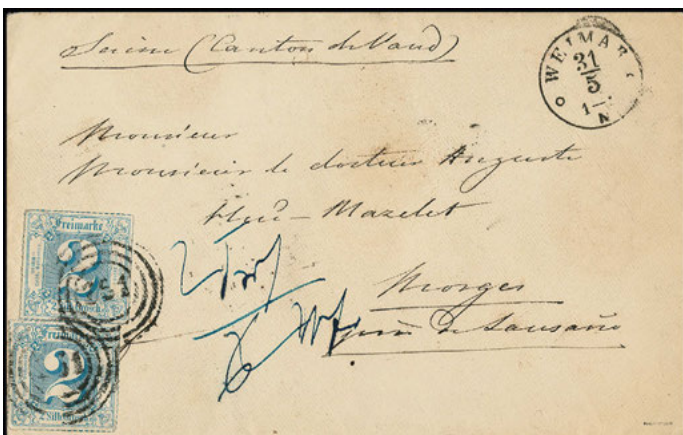 Suisse (Canton de Vaud)
WEIMAR
31
5
1-
N
Monsieur
Monsieur le docteur Auguste
Mazelet
Morges
près de Lausanne
Freimarke
2
51
Freimarke
2
51